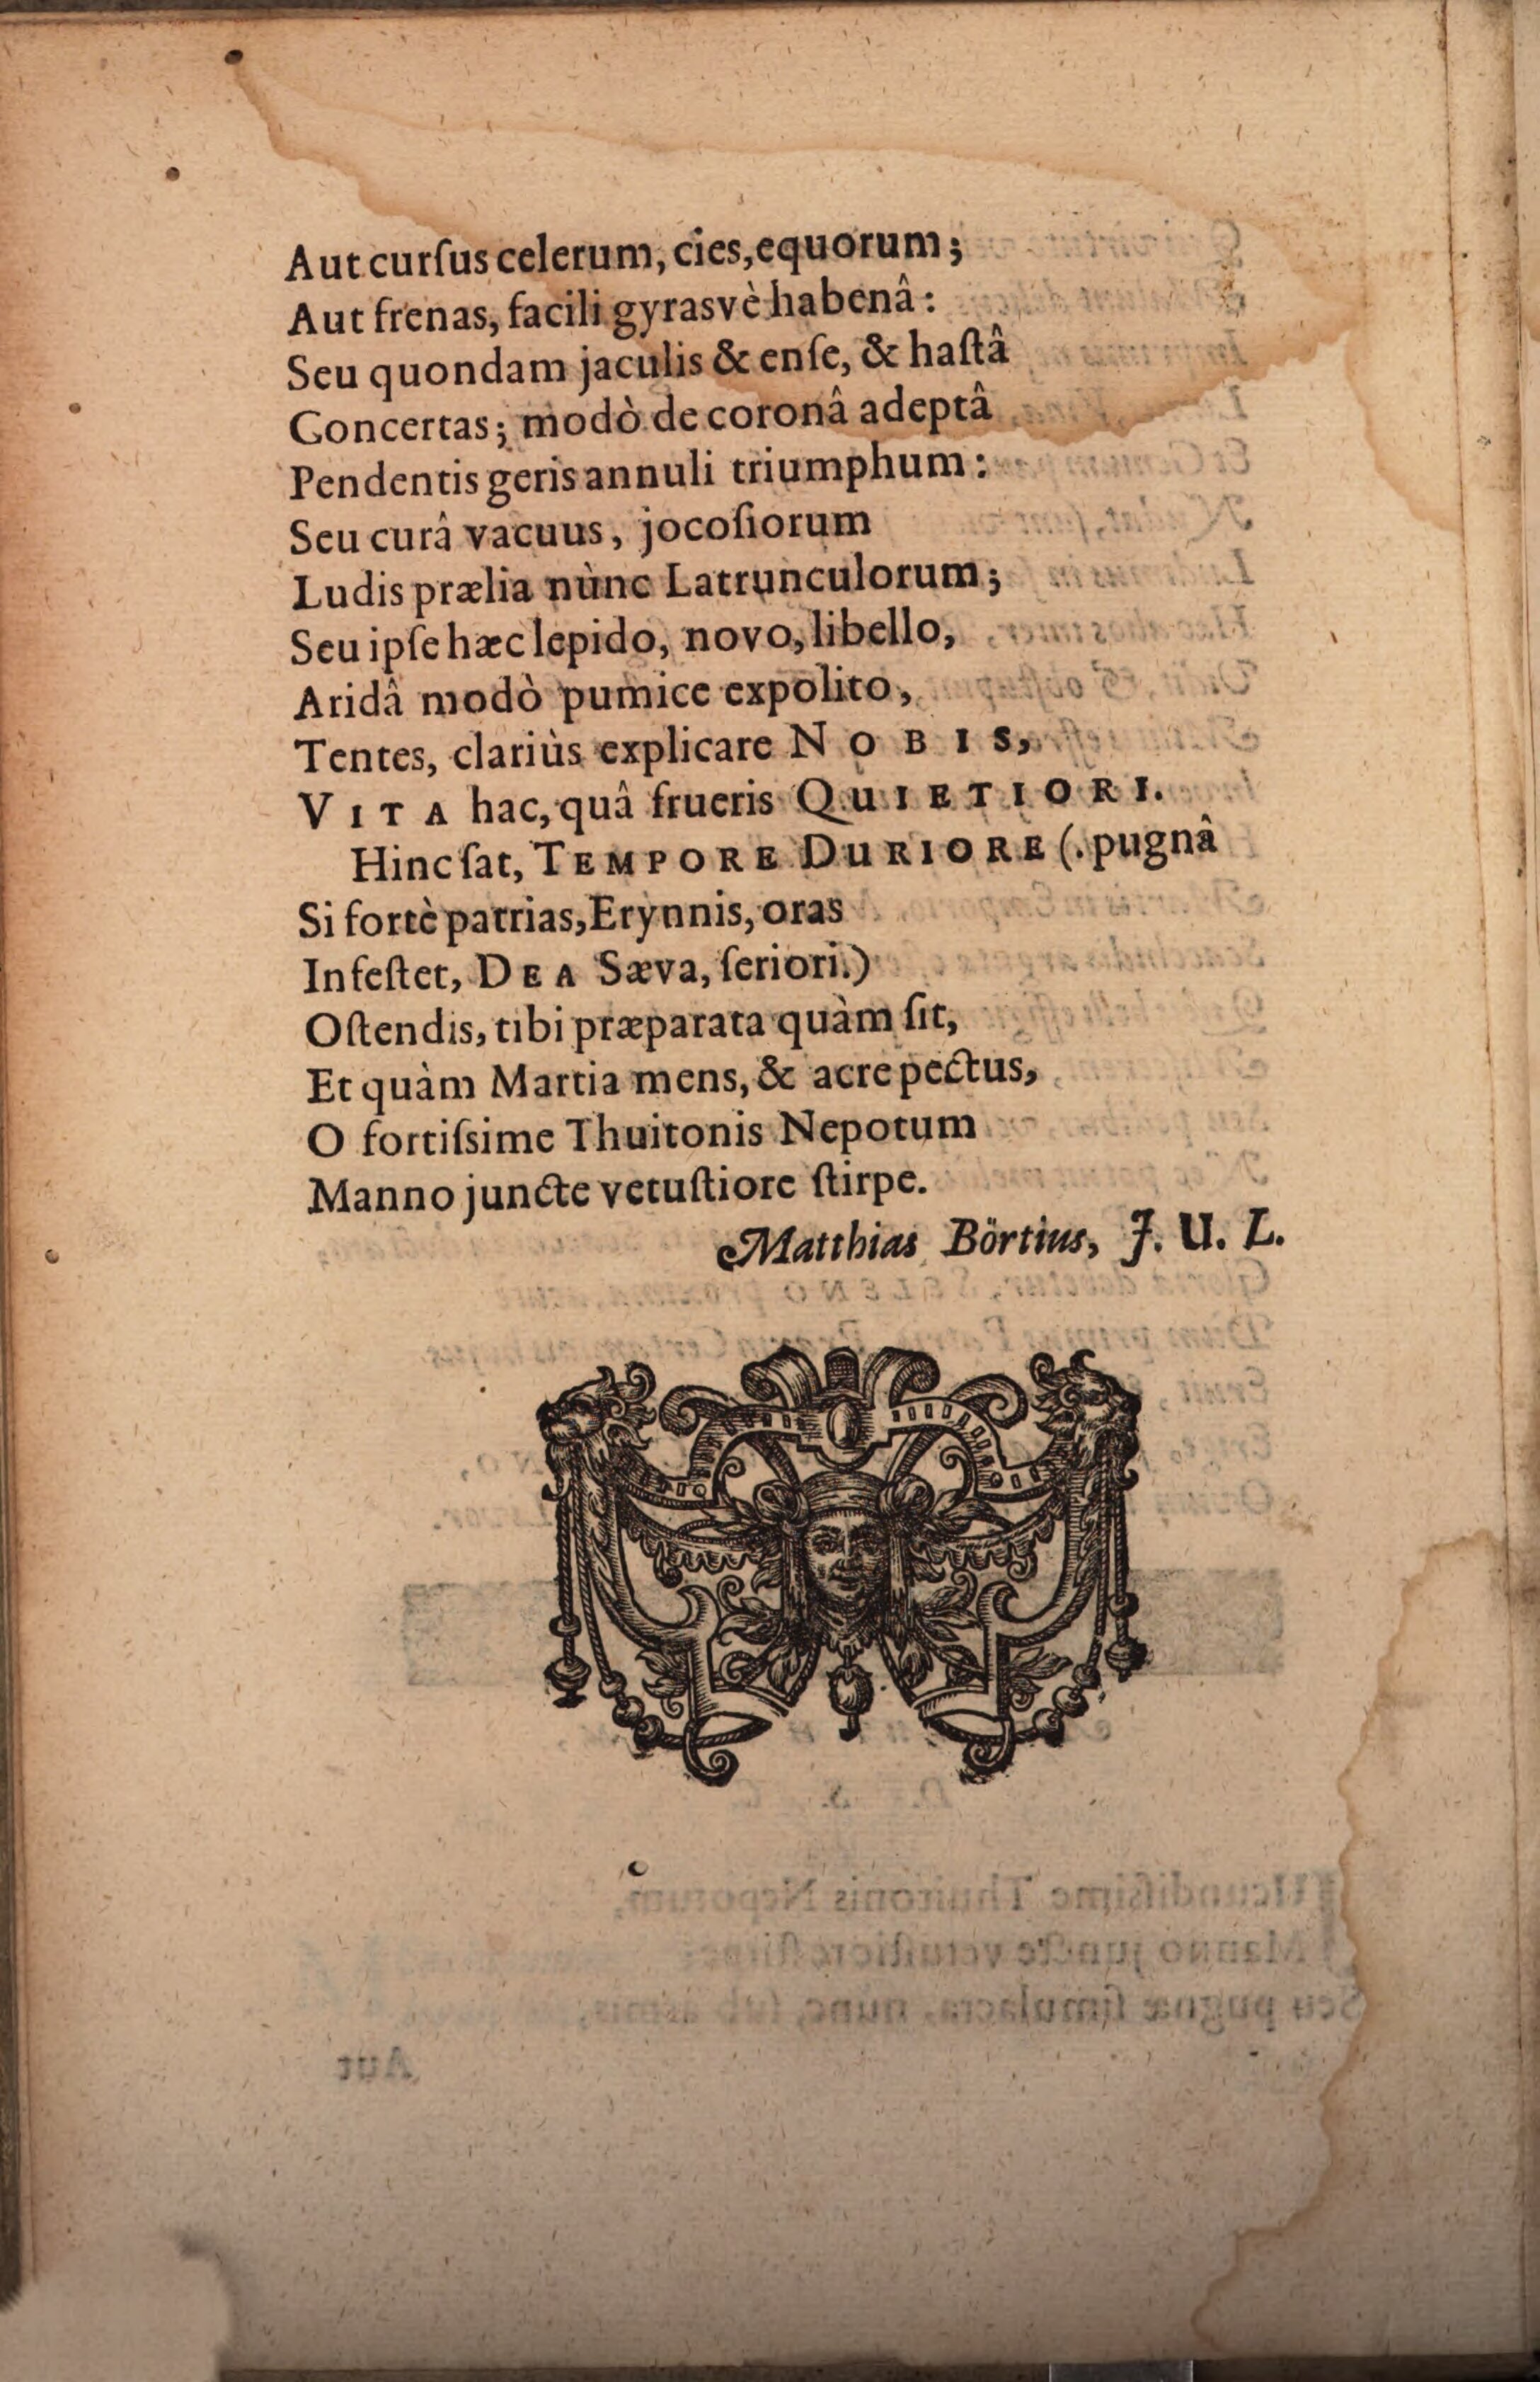 Aut curſus celerum, cies, equorum;
Aut frenas, facili gyrasvè habenâ:
Seu quondam jaculis & enſe, & haſtâ
Concertas; modò de coronâ adeptâ
Pendentis geris annuli triumphum:
Seu curâ vacuus, jocoſiorum
Ludis prælia nùnc Latrunculorum;
Seu ipſe hæc lepido, novo, libello,
Aridâ modò pumice expolito,
Tentes, clariùs explicare NOBIS,
VITA hac, quâ frueris QUIETIORI.
Hinc ſat, TEMPORE DURIORE (.pugnâ
Si fortè patrias, Erynnis, oras
Infeſtet, DEA Sæva, ſeriori.)
Oſtendis, tibi præparata quàm ſit,
Et quàm Martia mens, & acre pectus,
O fortiſsime Thuitonis Nepotum
Manno juncte vetuſtiore ſtirpe.
Matthias Börtius, J. U. L.